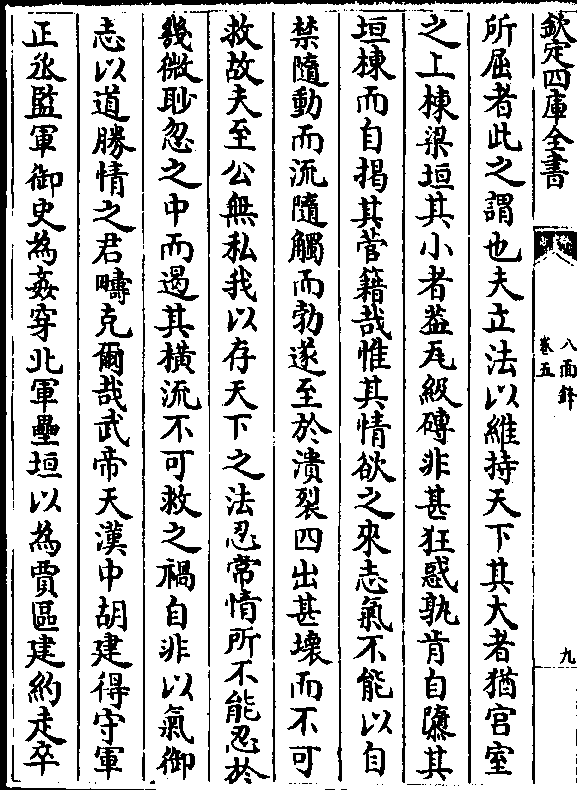 欽定四庫全書
八面鋒
卷五
九
所屈者此之謂也夫立法以維持天下其大者猶宮室
之上棟梁垣其小者葢瓦級磚非甚狂惑孰肯自隳其
垣棟而自揭其菅籍哉惟其情欲之來志氣不能以自
禁隨動而流隨觸而勃遂至於潰裂四出甚壊而不可
救故夫至公無私我以存天下之法忍常情所不能忍於
幾微眇忽之中而遏其橫流不可救之禍自非以氣御
志以道勝情之君疇克爾哉武帝天漢中胡建得守軍
正丞監軍御史為姦穿北軍壘垣以為賈區建約走卒